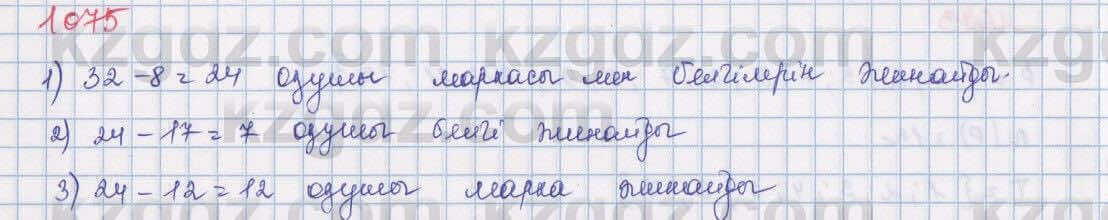 1075
1) 32 - 8 = 24 оқушы маркасы мен белгілерін жинайды.
2) 24 - 17 = 7 оқушы белгі жинайды
3) 24 - 12 = 12 оқушы марка жинайды
kzgdz.com kzgdz.com kzgdz.com